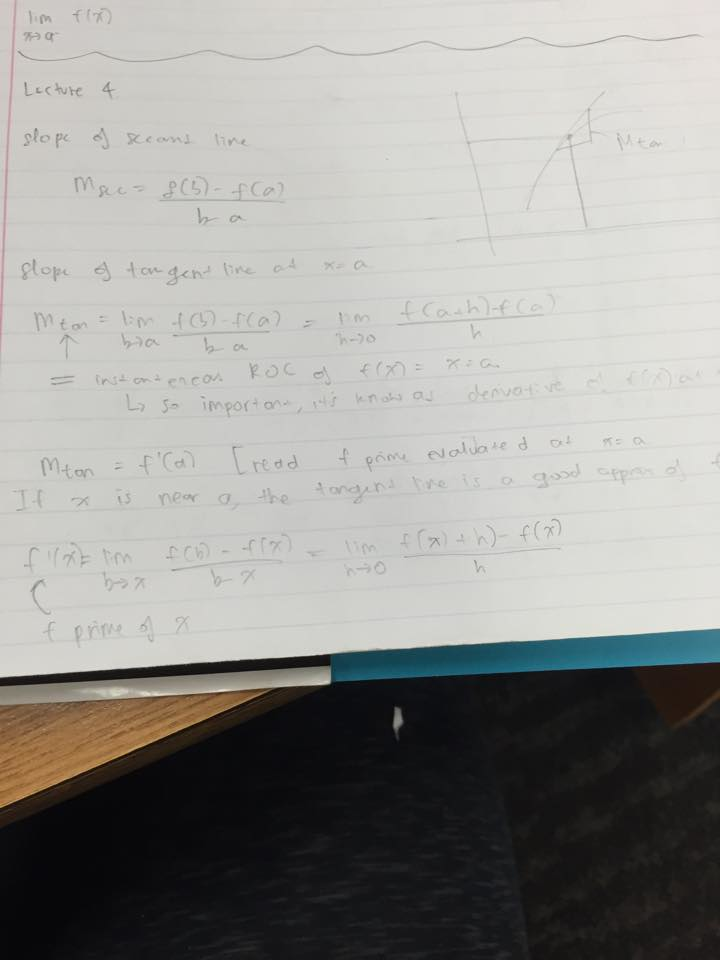 lim f(x)
x→a
Lecture 4
slope of secant line
Msec = f(b) - f(a)
b a
Mtan
slope of tangent line at x=a
Mtan = lim f(b) - f(a) = lim f(a+h) - f(a)
b→a b a h→0 h
= instantaneous ROC of f(x) = x=a
↳ so important, it's know as derivative of f(x) at
Mtan = f'(a) [read f prime evaluated at x=a
If x is near a, the tangent line is a good approx of f
f'(x) = lim f(b) - f(x) = lim f(x) + h) - f(x)
b→x b x h→0 h
f prime of x